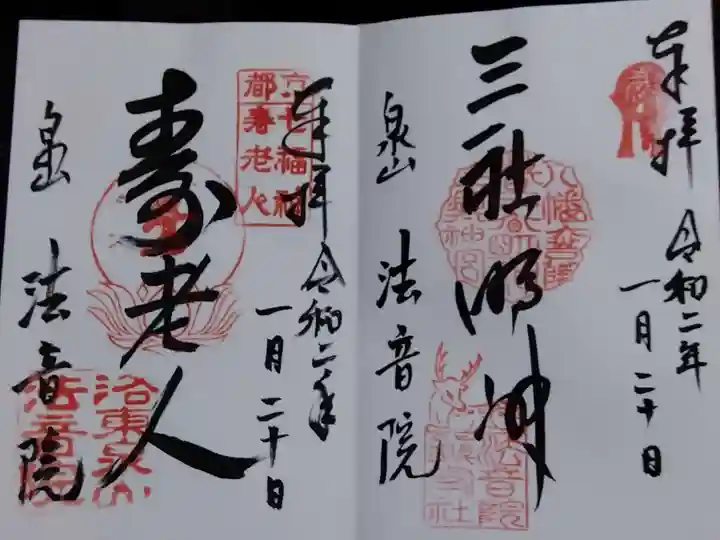 奉拝
令和二年
一月二十日
三社明神
泉山
法音院
奉拝
令和二年
一月二十日
京七福神
都寿老人
寿老人
泉山
法音院
洛東泉山
法音院